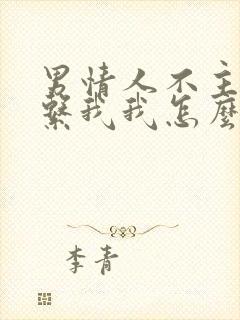 男情人不主
繫我我怎麼
李青